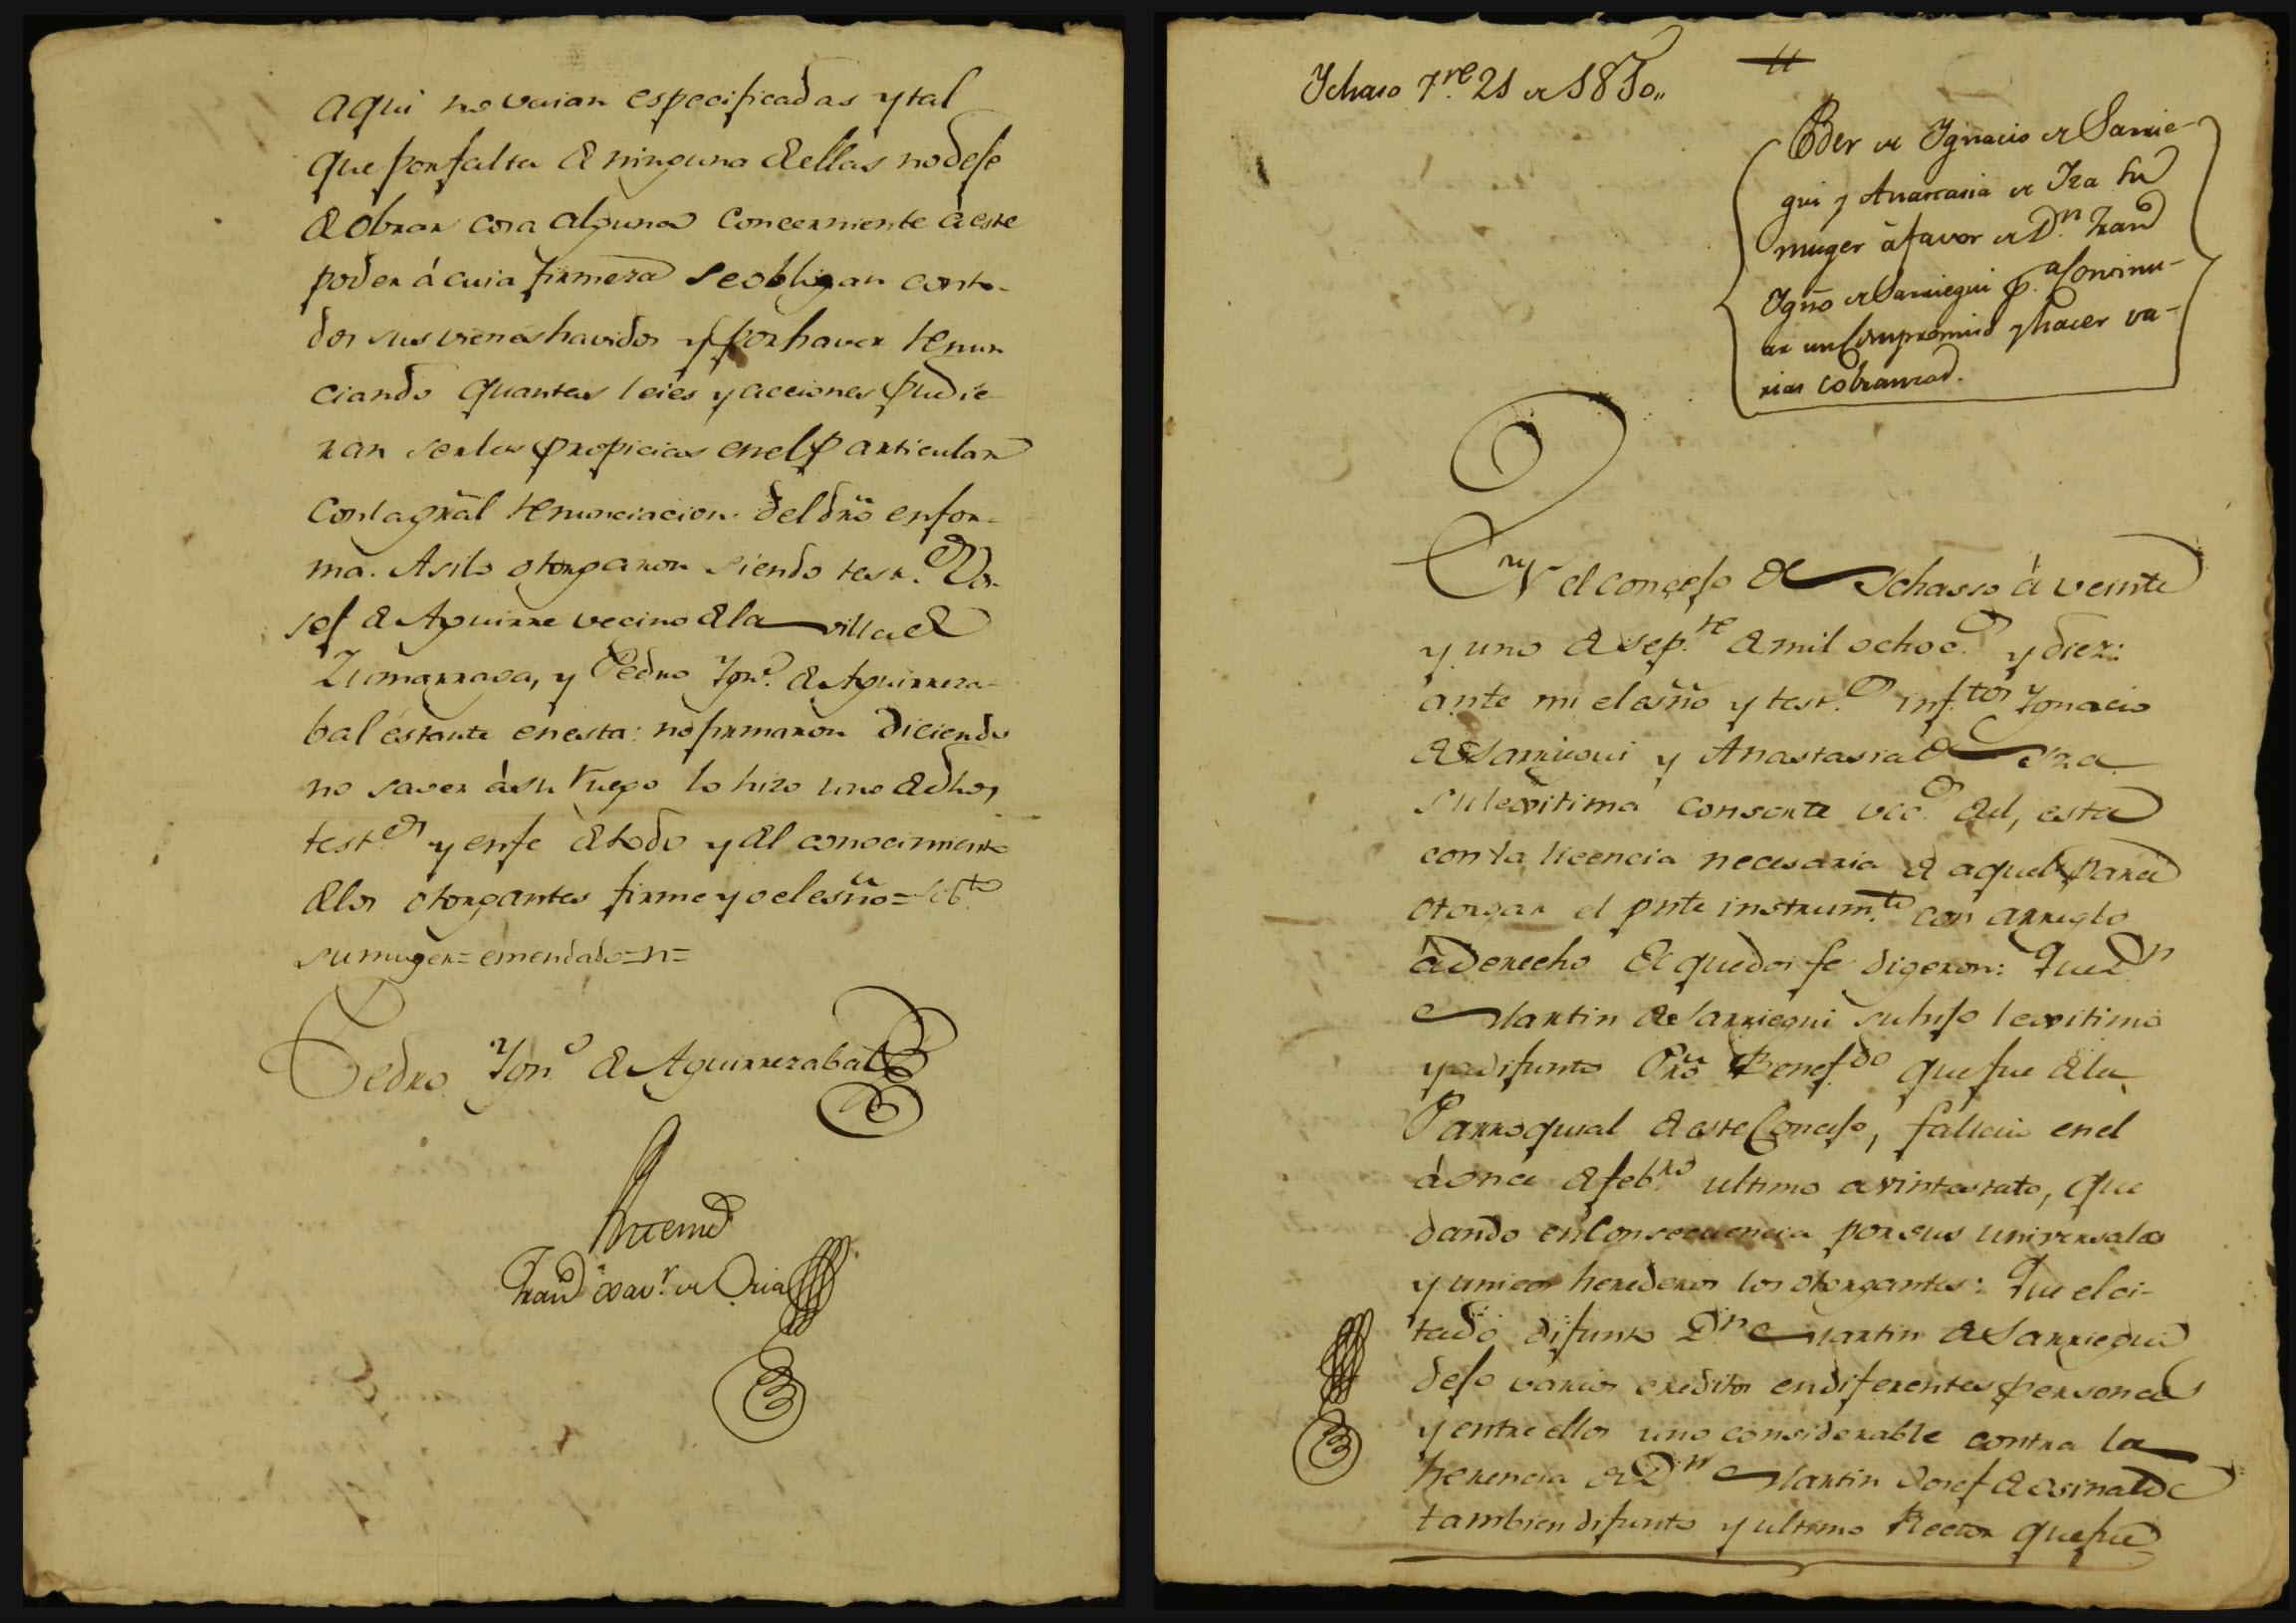 aqui no vaian especificadas y tal
que por falta de ninguna de ellas no deje
de obrar cosa alguna concerniente à este
poder á cuia firmeza se obligan con to-
dos sus vienes havidos y por haver renun
ciando quantas leies y acciones pudie-
ran serles propicias en el particular
con la gral renunciacion del dro en for-
ma. Asi lo otorgaron siendo test.s Jo-
sef de Aguirre vecino de la villa de
Zumarraga, y Pedro Ign.o de Aguirreza-
bal éstante en esta: no firmaron diciendo
no saver à su ruego lo hizo uno de dhos
test.s y en fe de todo y del conocimiento
de los otorgantes firme yo el esño = sob.to
su muger = emendado = n =
Pedro Ign.o de Aguirrezabal
Antemi
Fran.co Xav.r de Oria
Ichaso 7.re 21 de 1810,,
Poder de Ignacio de Sarrie-
gui y Anastasia de Iza su
muger à favor de D.n Fran.co
Ign.o de Sarriegui p.a continu-
ar un Compromiso y hacer va-
rias cobranzas.
En el concejo de Ichasso à veinte
y uno de sep.re de mil ochoc.s y diez:
ante mi el esño y test.s inf.tos Ignacio
de Sarriegui y Anastasia de Iza
su lexitima consorte vec.s de el, esta
con la licencia necesaria de aquel para
otorgar el pnte instrum.to con arreglo
à derecho de que doi fe digeron: Que D.n
Martin de Sarriegui su hijo lexitimo
ya difunto Pro Benef.do que fue de la
Parroquial de este Concejo, fallecio en el
à once de feb.ro ultimo avintestato, que
dando en consecuencia por sus universales
y unicos herederos los otorgantes: Que el ci-
tado difunto D.n Martin de Sarriegui
dejo varios creditos en diferentes personas
y entre ellos uno considerable contra la
herencia de D.n Martin Josef de Osinalde
tambien difunto y ultimo Rector que fue